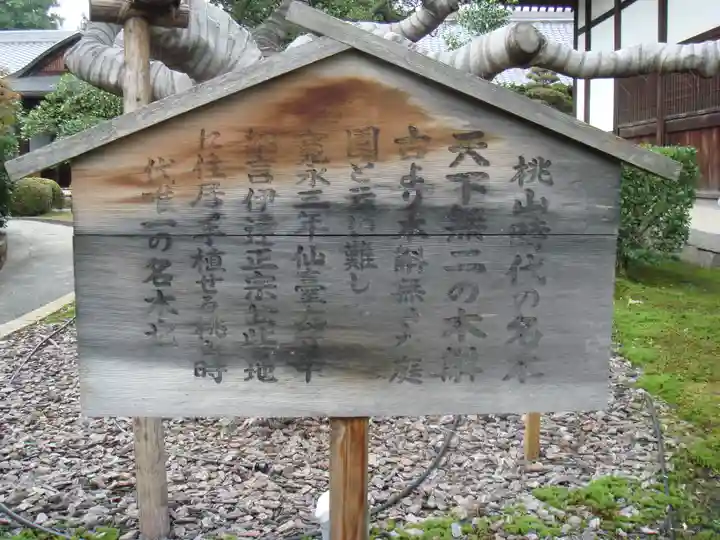 桃山時代の名木
天下無二の木斛
古より木斛無きハ庭
園と云ひ難し
永三年仙臺
伊達正宗公此地
に住居手植せる桃山時
代唯一の名木也